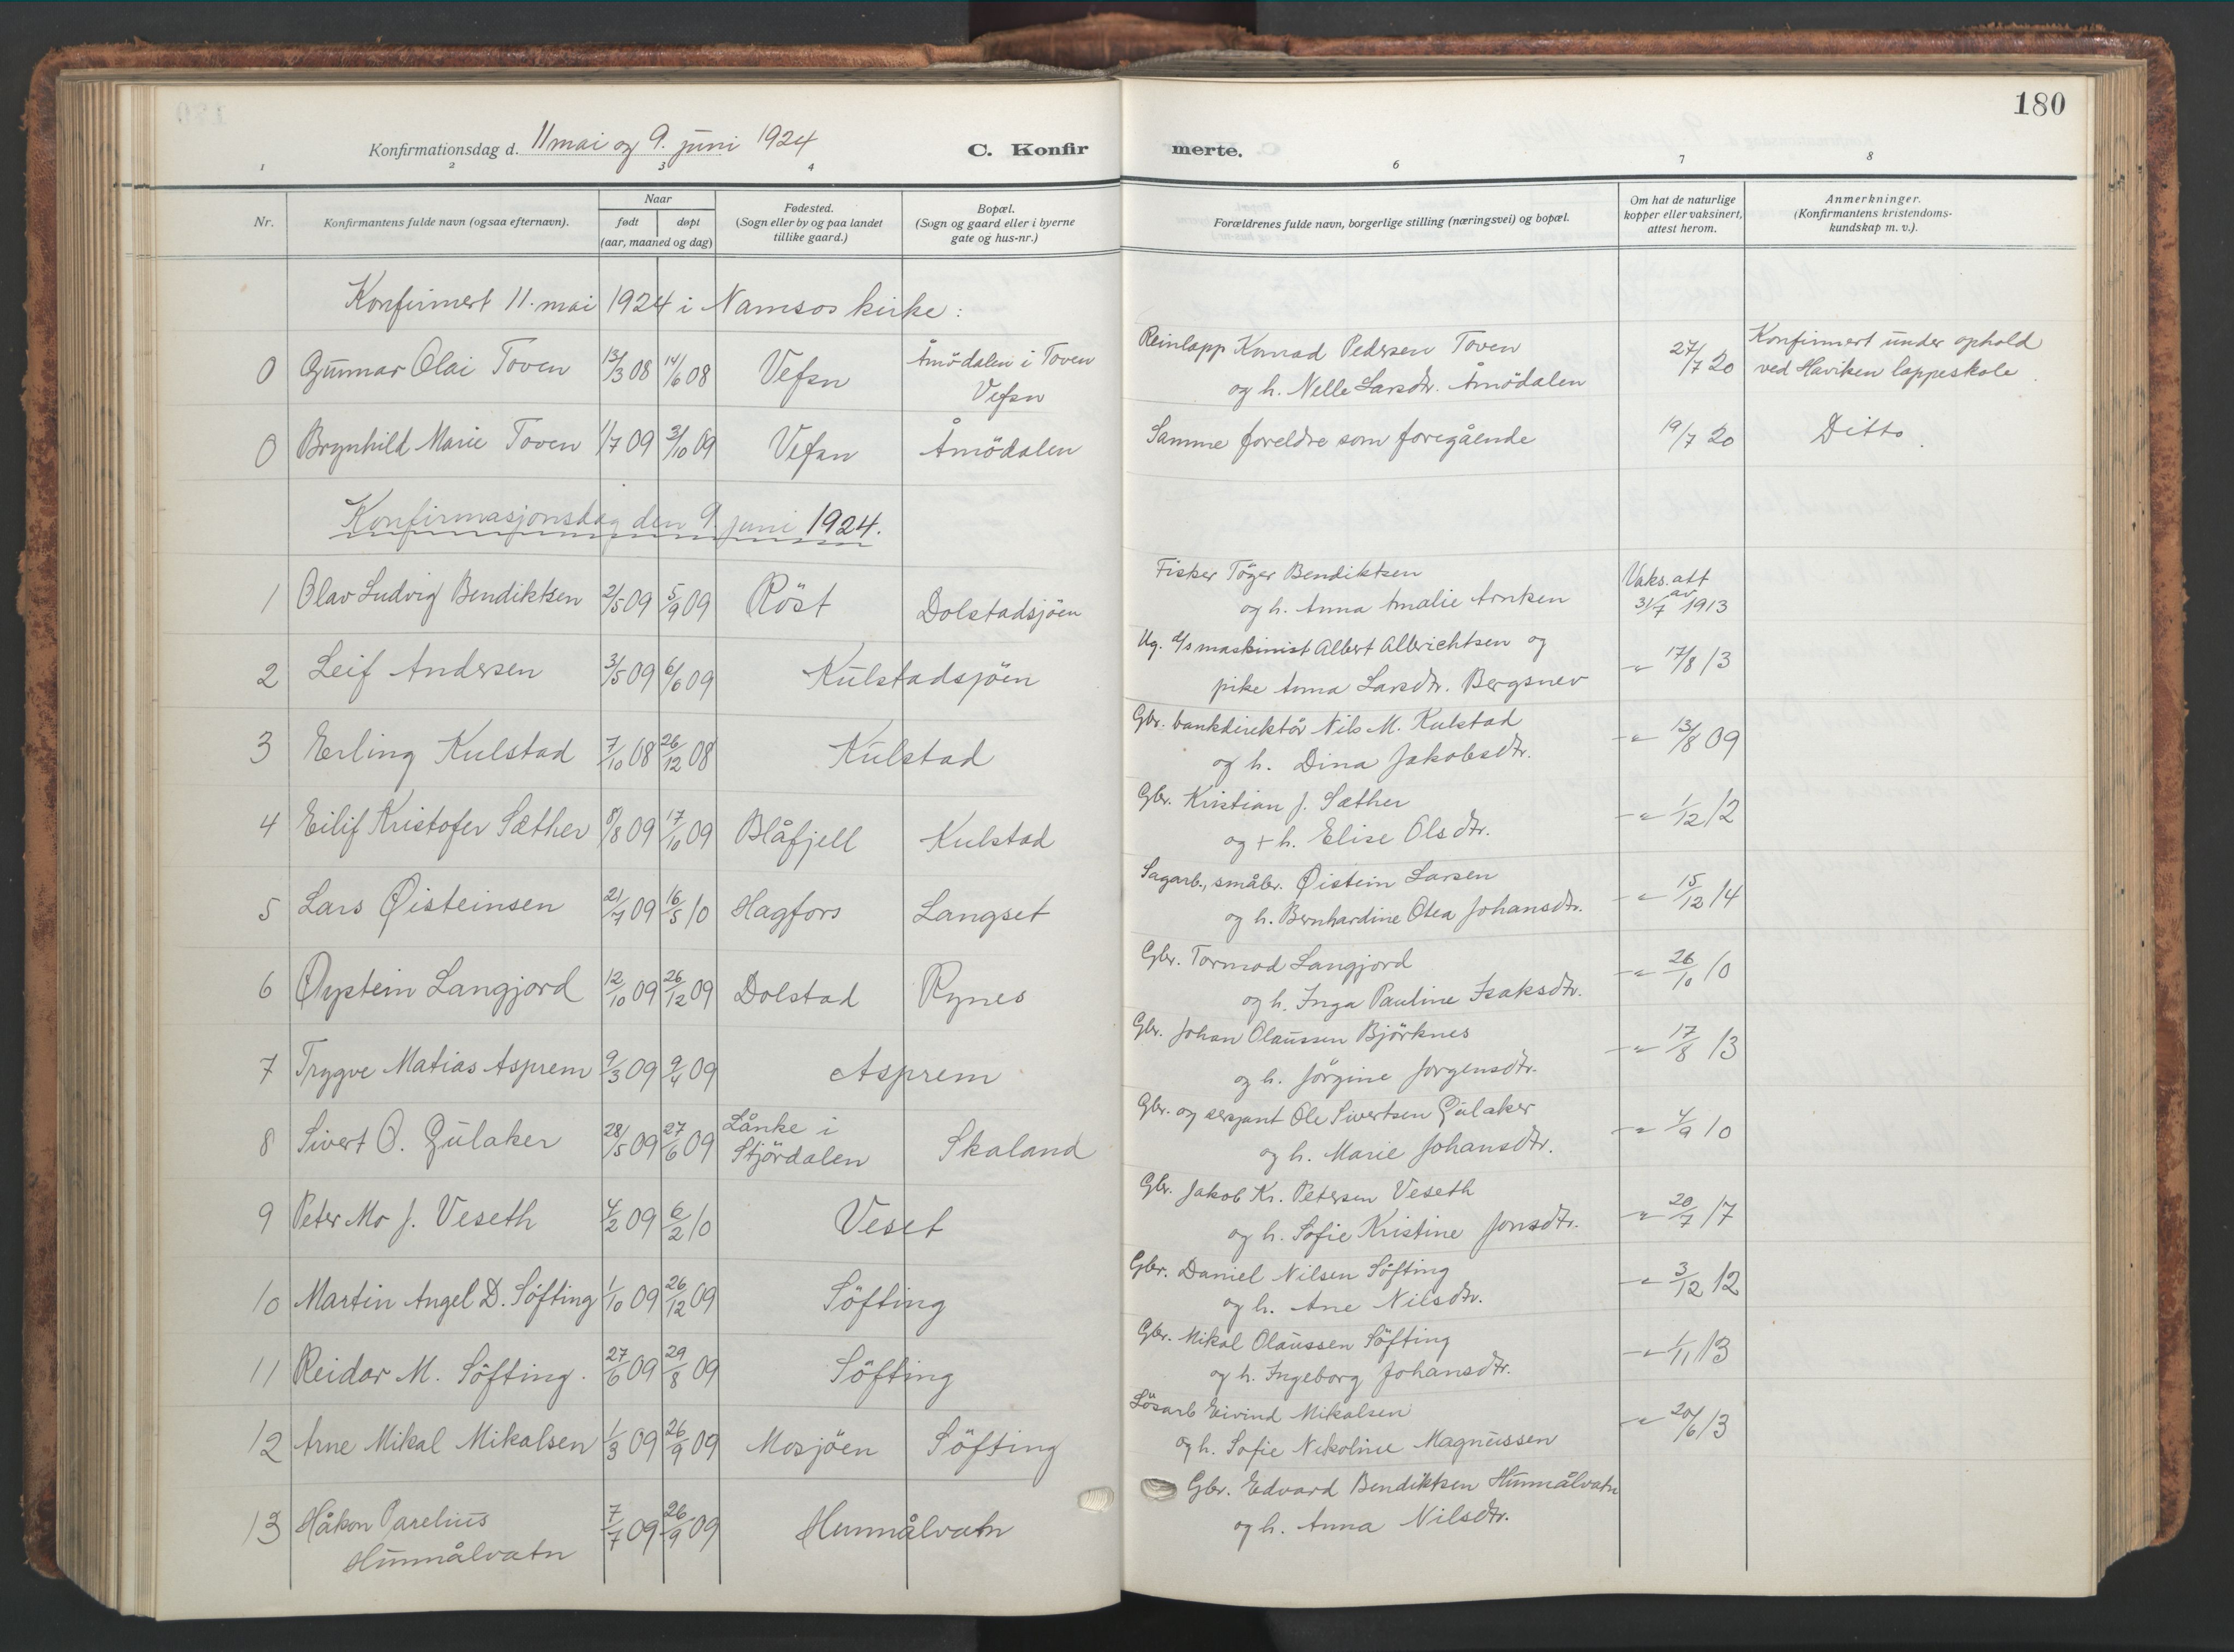 180
Konfirmationsdag d. 11 mai og 9. juni 1924
C. Konfirmerte.
1 2 3 4 6 7 8
Nr. Konfirmantens fulde navn (ogsaa efternavn). Naar født døpt (aar, maaned og dag) Fødested. (Sogn eller by og paa landet tillike gaard.) Bopæl. (Sogn og gaard eller i byerne gate og hus-nr.) Forældrenes fulde navn, borgerlige stilling (næringsvei) og bopæl. Om hat de naturlige kopper eller vaksinert, attest herom. Anmerkninger. (Konfirmantens kristendoms-kundskap m. v.).
Konfirmert 11. mai 1924 i Namsos kirke:
0 Gunnar Olai Toven 13/3 08 14/6 08 Vefsn Åmödalen i Toven Vefsn Reinlapp Konrad Pedersen Toven
og h. Nelle Larsdtr. Åmödalen 27/7 20 Konfirmert under ophold
ved Haviken lappeskole.
0 Brynhild Marie Toven 1/7 09 3/10 09 Vefsn Åmödalen Samme foreldre som foregående 19/7 20 Ditto.
Konfirmasjonsdag den 9. juni 1924.
1 Olav Ludvig Bendiktsen 2/5 09 5/9 09 Röst Dolstadsjöen Fisker Töger Bendiktsen
og h. Anna Amalie Arntzen Vaks. att av 31/7 1913
2 Leif Andersen 3/5 09 6/6 09 Kulstadsjöen Ug. d/s maskinist Albert Albrichtsen og
pike Anna Larsdtr. Bergsnev -"- 17/8 13
3 Erling Kulstad 7/10 08 26/12 08 Kulstad Gbr. bankdirektör Nils M. Kulstad
og h. Dina Jakobsdtr. -"- 13/8 09
4 Eilif Kristofer Sæther 8/8 09 17/10 09 Blåfjell Kulstad Gbr. Kristian J. Sæther
og + h. Elise Olsdtr. -"- 1/12 12
5 Lars Øisteinsen 21/7 09 16/5 10 Hagfors Langset Sagarb., småbr. Øistein Larsen
og h. Bernhardine Otea Johansdtr. -"- 15/12 14
6 Øystein Langjord 12/10 09 26/12 09 Dolstad Rynes Gbr. Tormod Langjord
og h. Inga Pauline Isaksdtr. -"- 26/10 10
7 Trygve Matias Asprem 9/3 09 9/4 09 Asprem Gbr. Johan Olaussen Björknes
og h. Jörgine Jorgensdtr. -"- 17/8 13
8 Sivert O. Gulaker 28/5 09 27/6 09 Lånke i Stjördalen Skaland Gbr. og sersjant Ole Sivertsen Gulaker
og h. Marie Johansdtr. -"- 4/9 10
9 Peter Mo J. Veseth 4/2 09 6/2 10 Veset Gbr. Jakob Kr. Petersen Veseth
og h. Sofie Kristine Jonsdtr. -"- 20/7 17
10 Martin Angel D. Söfting 1/10 09 26/12 09 Söfting Gbr. Daniel Nilsen Söfting
og h. Ane Nilsdtr. -"- 3/12 12
11 Reidar M. Söfting. 27/6 09 29/8 09 Söfting Gbr. Mikal Olaussen Söfting
og h. Ingeborg Johansdtr. -"- 1/11 13
12 Arne Mikal Mikalsen 1/3 09 26/9 09 Mosjöen Söfting Lösarb Eivind Mikalsen
og h. Sofie Nikoline Magnussen -"- 20/6 13
13 Håkon Parelius
Hunnålvatn 7/7 09 26/9 09 Hunnålvatn Gbr. Edvard Bendiktsen Hunnålvatn
og h. Anna Nilsdtr.